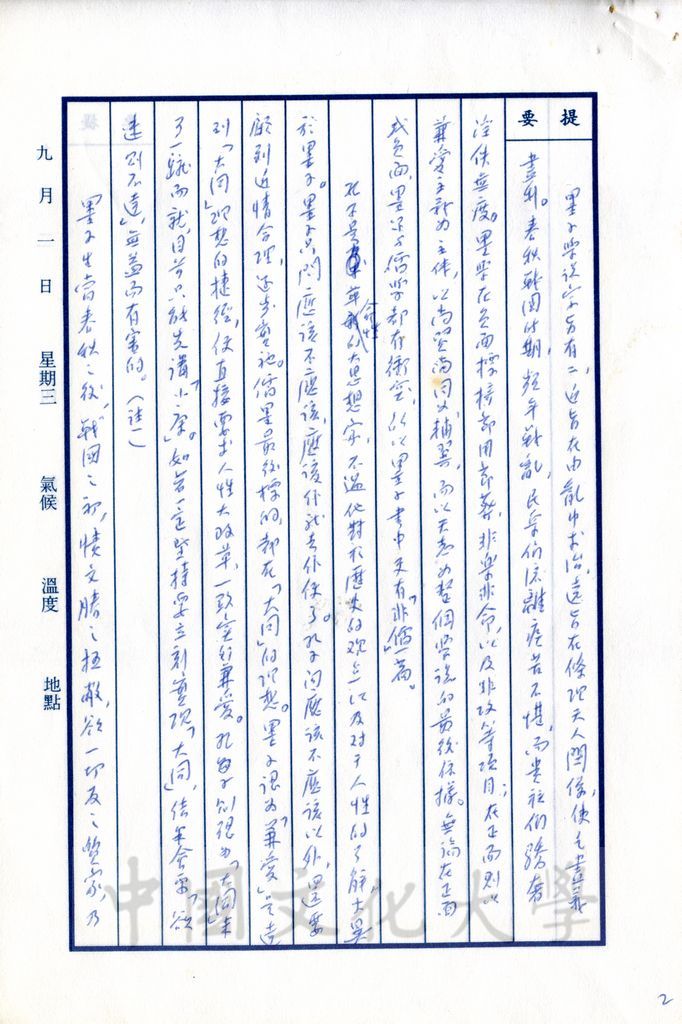 提要
墨子學說宗旨有二,近旨在由亂中求治,遠旨在條理天人關係,使之盡義
盡利。春秋戰國時期,頻年戰亂,民眾們流離疾苦不堪,而貴族們驕奢
淫佚無度。墨學在負面標榜節用節葬,非樂非命,以及非攻等項目;在正面則以
兼愛主新為主体,以尚賢尚同為輔翼,而以天志為整個學說的最後依據。無論在正面
或負面,墨學与儒學都在衝突,所以墨子書中更有「非儒」一篇。
孔子是革命性的大思想家,不過他對於歷史的观点以及对于人性的了解,大異
於墨子。墨子只問應該不應該,應該作就去作便了。孔子問應該不應該以外,還要
顧到近情合理,逐步實施。儒墨最後標的,都在「大同」的理想。墨子認为「兼愛」是達
到「大同」理想的捷徑,便直接要求人性大改革,一致实行兼愛。孔子則認为「大同」未
了一蹴而就,目前只能先講「小康」。如若一定堅持要立刻實现「大同」,結果會要「欲
速則不達」,無益而有害的。(註一)
墨子生當春秋之後,戰國之初,憤文勝之極敝,欲一切反之質家,乃
九月一日 星期三 氣候 溫度 地點
中國文化大學
2